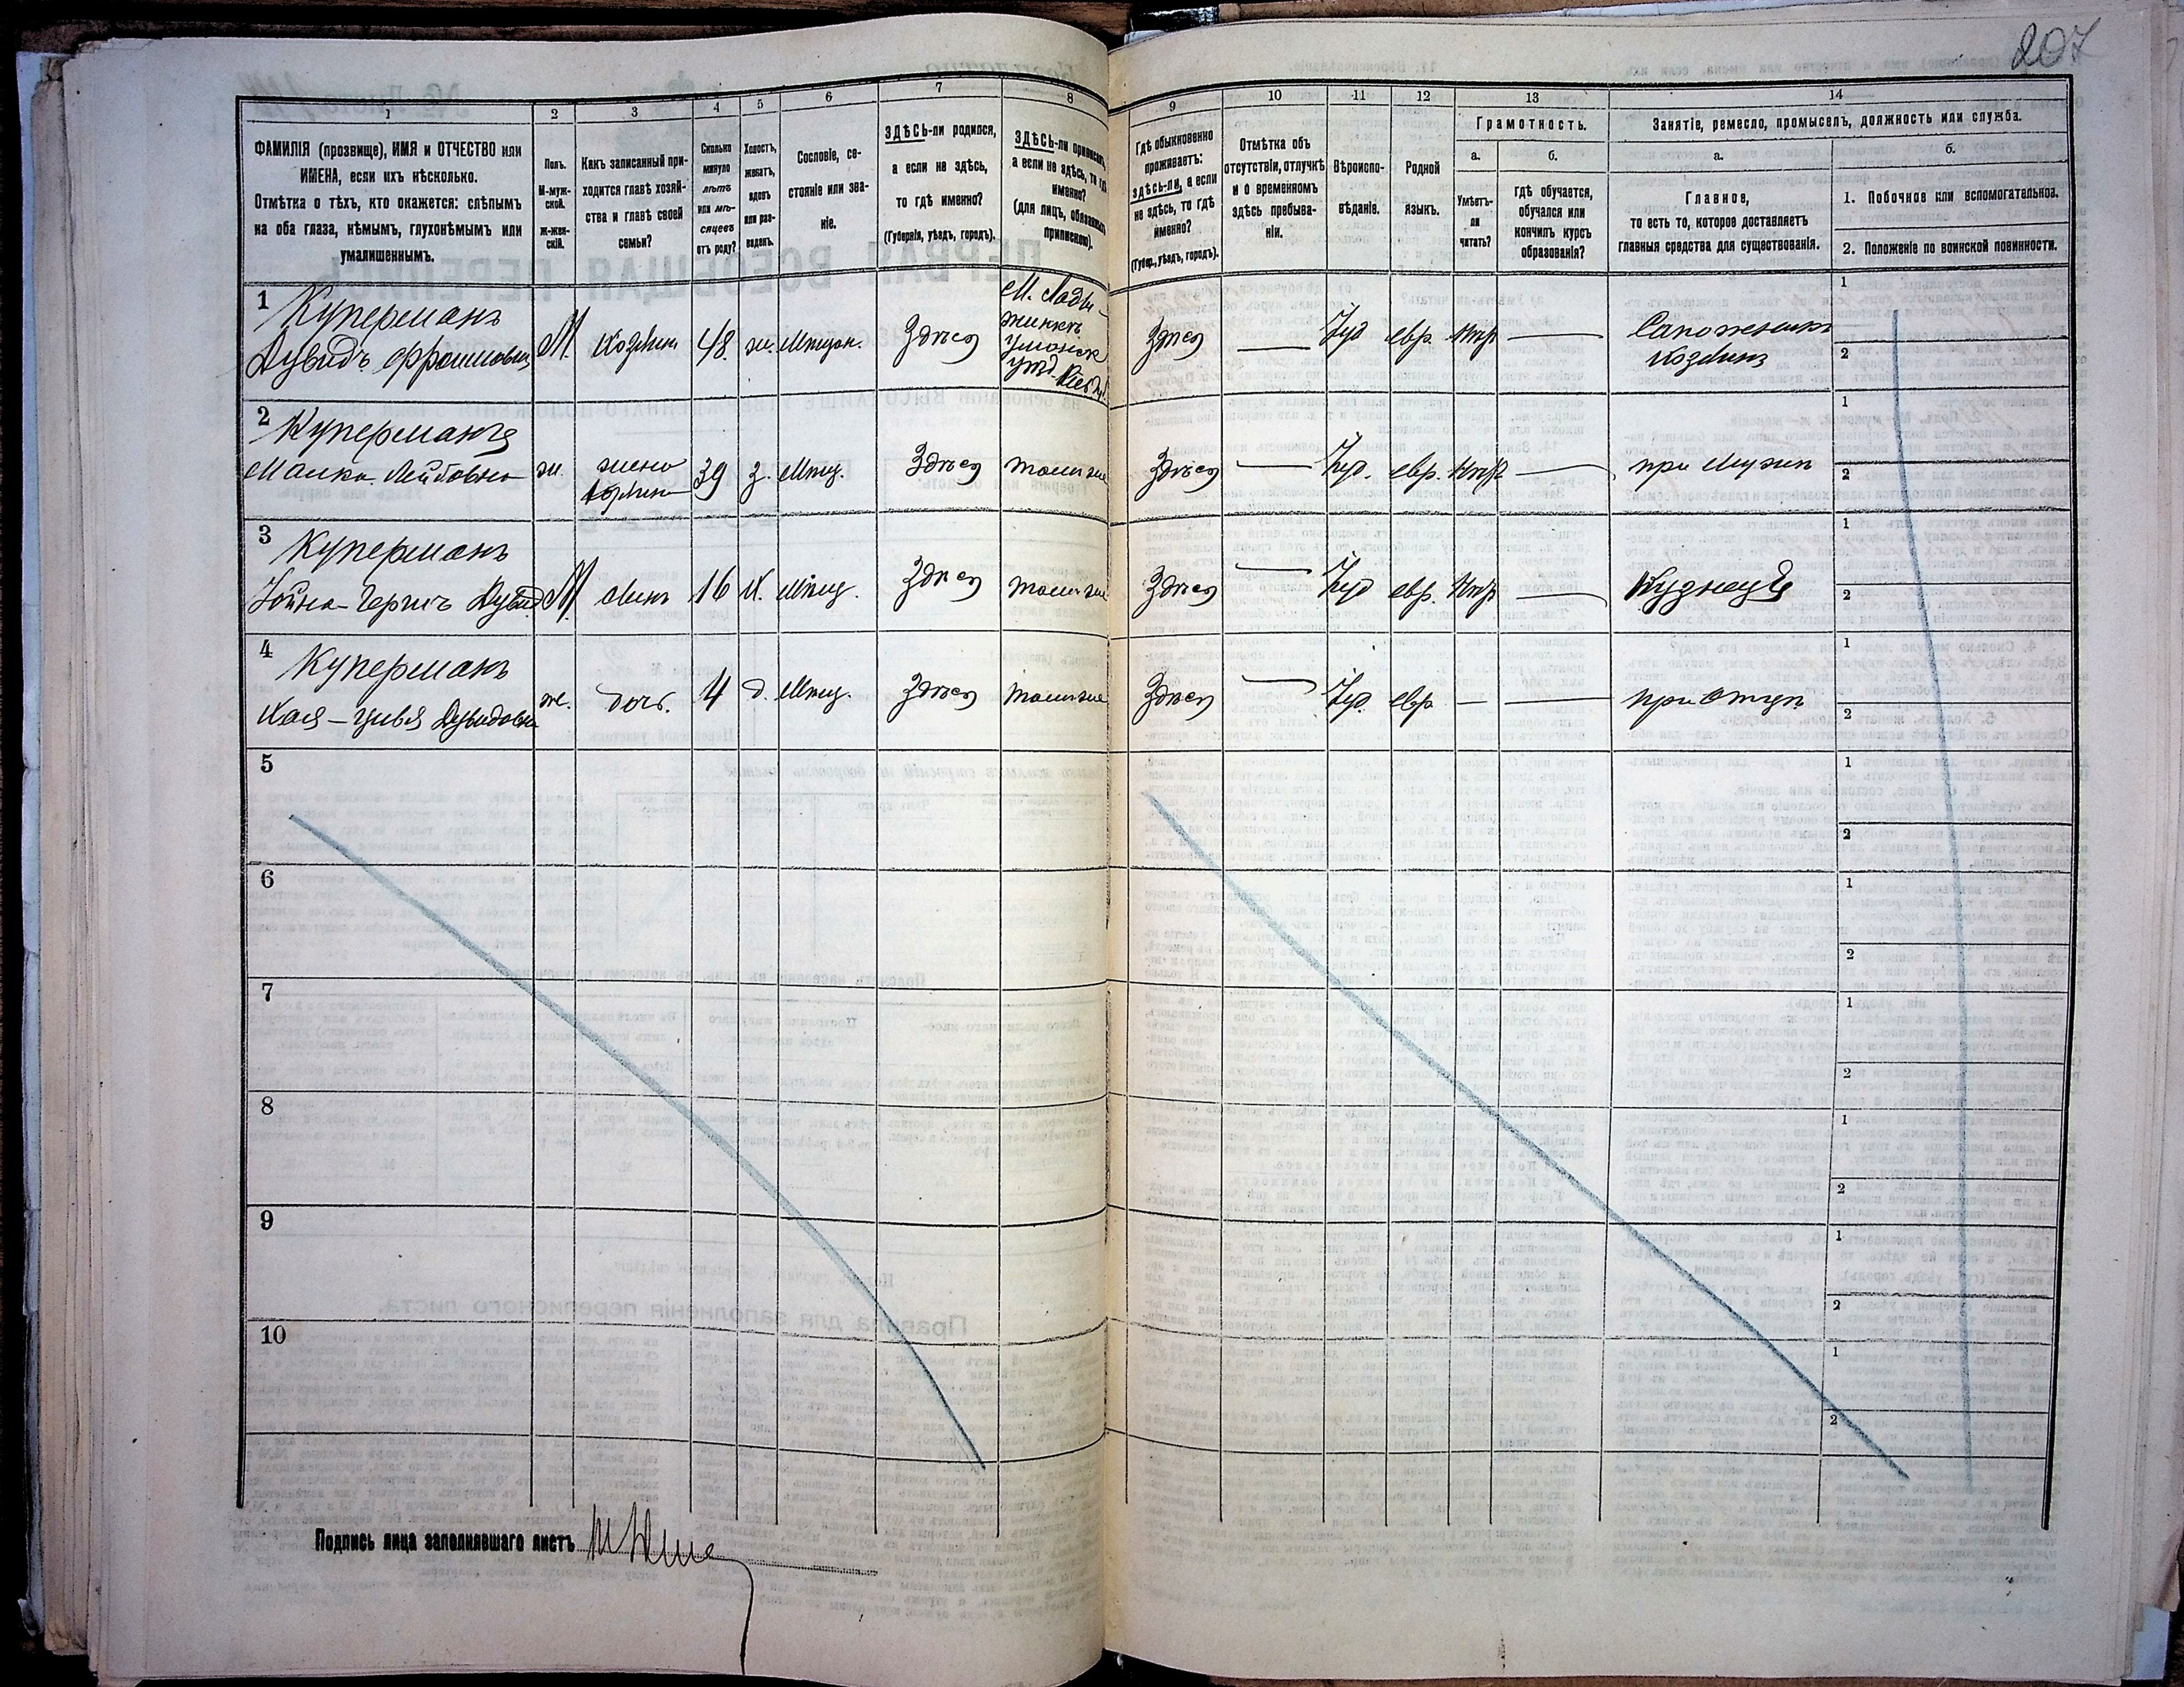 207
1
2
3
4
5
6
7
8
9
10
11
12
13
14
ФАМИЛІЯ (прозвище), ИМЯ и ОТЧЕСТВО или
ИМЕНА, если ихъ нѣсколько.
Отмѣтка о тѣхъ, кто окажется: слѣпымъ
на оба глаза, нѣмымъ, глухонѣмымъ или
умалишеннымъ.
Полъ.
М-муж-
ской.
Ж-жен-
скій.
Какъ записанный при-
ходится главѣ хозяй-
ства и главѣ своей
семьи?
Сколько
минуло
лѣтъ
или мѣ-
сяцевъ
отъ роду?
Холостъ,
женатъ,
вдовъ
или раз-
веденъ.
Сословіе, со-
стояніе или зва-
ніе.
ЗДѢСЬ-ли родился,
а если не здѣсь,
то гдѣ именно?
(Губернія, уѣздъ, городъ).
ЗДѢСЬ-ли приписанъ,
а если не здѣсь, то гдѣ
именно?
(для лицъ, обязанныхъ
припискою).
Гдѣ обыкновенно
проживаетъ:
здѣсь-ли, а если
не здѣсь, то гдѣ
именно?
(Губер., уѣздъ, городъ).
Отмѣтка объ
отсутствіи, отлучкѣ
и о временномъ
здѣсь пребыва-
ніи.
Вѣроиспо-
вѣданіе.
Родной
языкъ.
Грамотность.
а.
Умѣетъ-
ли
читать?
б.
гдѣ обучается,
обучался или
кончилъ курсъ
образованія?
Занятіе, ремесло, промыселъ, должность или служба.
а.
Главное,
то есть то, которое доставляетъ
главныя средства для существованія.
б.
1. Побочное или вспомогательное.
2. Положеніе по воинской повинности.
1 Куперманъ
Дувидъ Фроимовичъ М. хозяин 48 ж. Мѣщан. Здѣсь
М. Лады-
жинкѣ
Уманск
уѣзд. Кіев. губ.
Здѣсь — Іуд евр. — Сапожникъ
хозяинъ
1
2
2 Куперман
Малка Лейбовна ж. жена
хозяина 39 з. Мѣщ. Здѣсь тамъ же Здѣсь — Іуд. евр. — при мужѣ
1
2
3 Куперманъ
Дувид. М. сынъ 16 х. Мѣщ. Здѣсь тамъ же Здѣсь — Іуд евр. — Кузнецъ
1
2
4 Куперманъ
Хая-Цивя Дувидовна ж. дочь. 4 д. Мѣщ. Здѣсь тамъ же Здѣсь — Іуд. евр. — — при отцѣ
1
2
5
1
2
6
1
2
7
1
2
8
1
2
9
1
2
10
1
2
Подпись лица заполнявшаго листъ